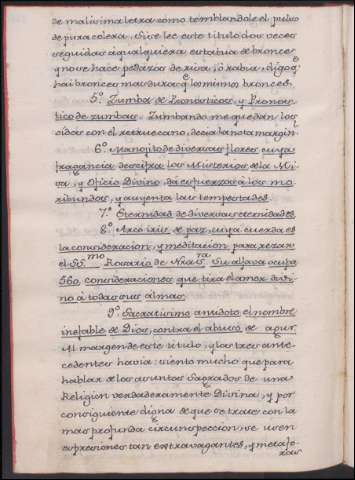 de malisima letra como temblandole el pulso
de pura colera. Si se lee este titulo dos veces
seguidas á qualquiera estatua de bronce,
y no se hace pedazos de risa, ò rabia, digo q.
hai bronces mas duros q. los mismos bronces.
5.º Zumba de Pronosticos, y Pronos-
tico de zumbas. Zumbando me quedan los
oidos con el retruecano, decia la nota margin.
6.º Manojito de diversas flores cuya
fragancia descifra los Misterios de la Mi-
sa, y Oficio Divino, da esfuerzo á los mo-
ribundos, y auyenta las tempestades.
7.º Eternidad de diversas eternidades.
8.º Arco iris de paz, cuya cuerda es
la consideracion, y meditacion, para rezar
el SS.mo Rosario de Nra. S.ra Su aljava ocupa
560. consideraciones que tira el amor divi-
no á todas las almas.
9.º Sacratisimo antidoto el nombre
inefable de Dios, contra el abuso de agur.
Al margen de este titulo, y los tres ante-
cedentes havia: siento mucho que para
hablar de los asuntos Sagrados de una
Religion verdaderamente Divina, y por
consiguiente digna de que se trate con la
mas profunda circunspeccion, se usen
expresiones tan extravagantes, y metafo-
ras